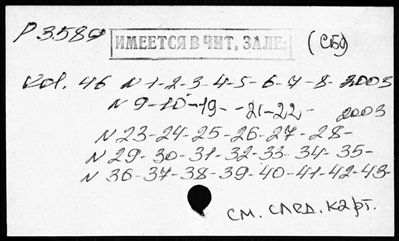 Р 3589 ИМЕЕТСЯ В ЧИТ. ЗАЛЕ: (СБО)
Vol. 46 N 1-2-3-4-5-6-7-8- 2003
N 9-10-19--21-22- 2003
N 23-24-25-26-27-28-
N 29-30-31-32-33-34-35-
N 36-37-38-39-40-41-42-43-
см. след. карт.